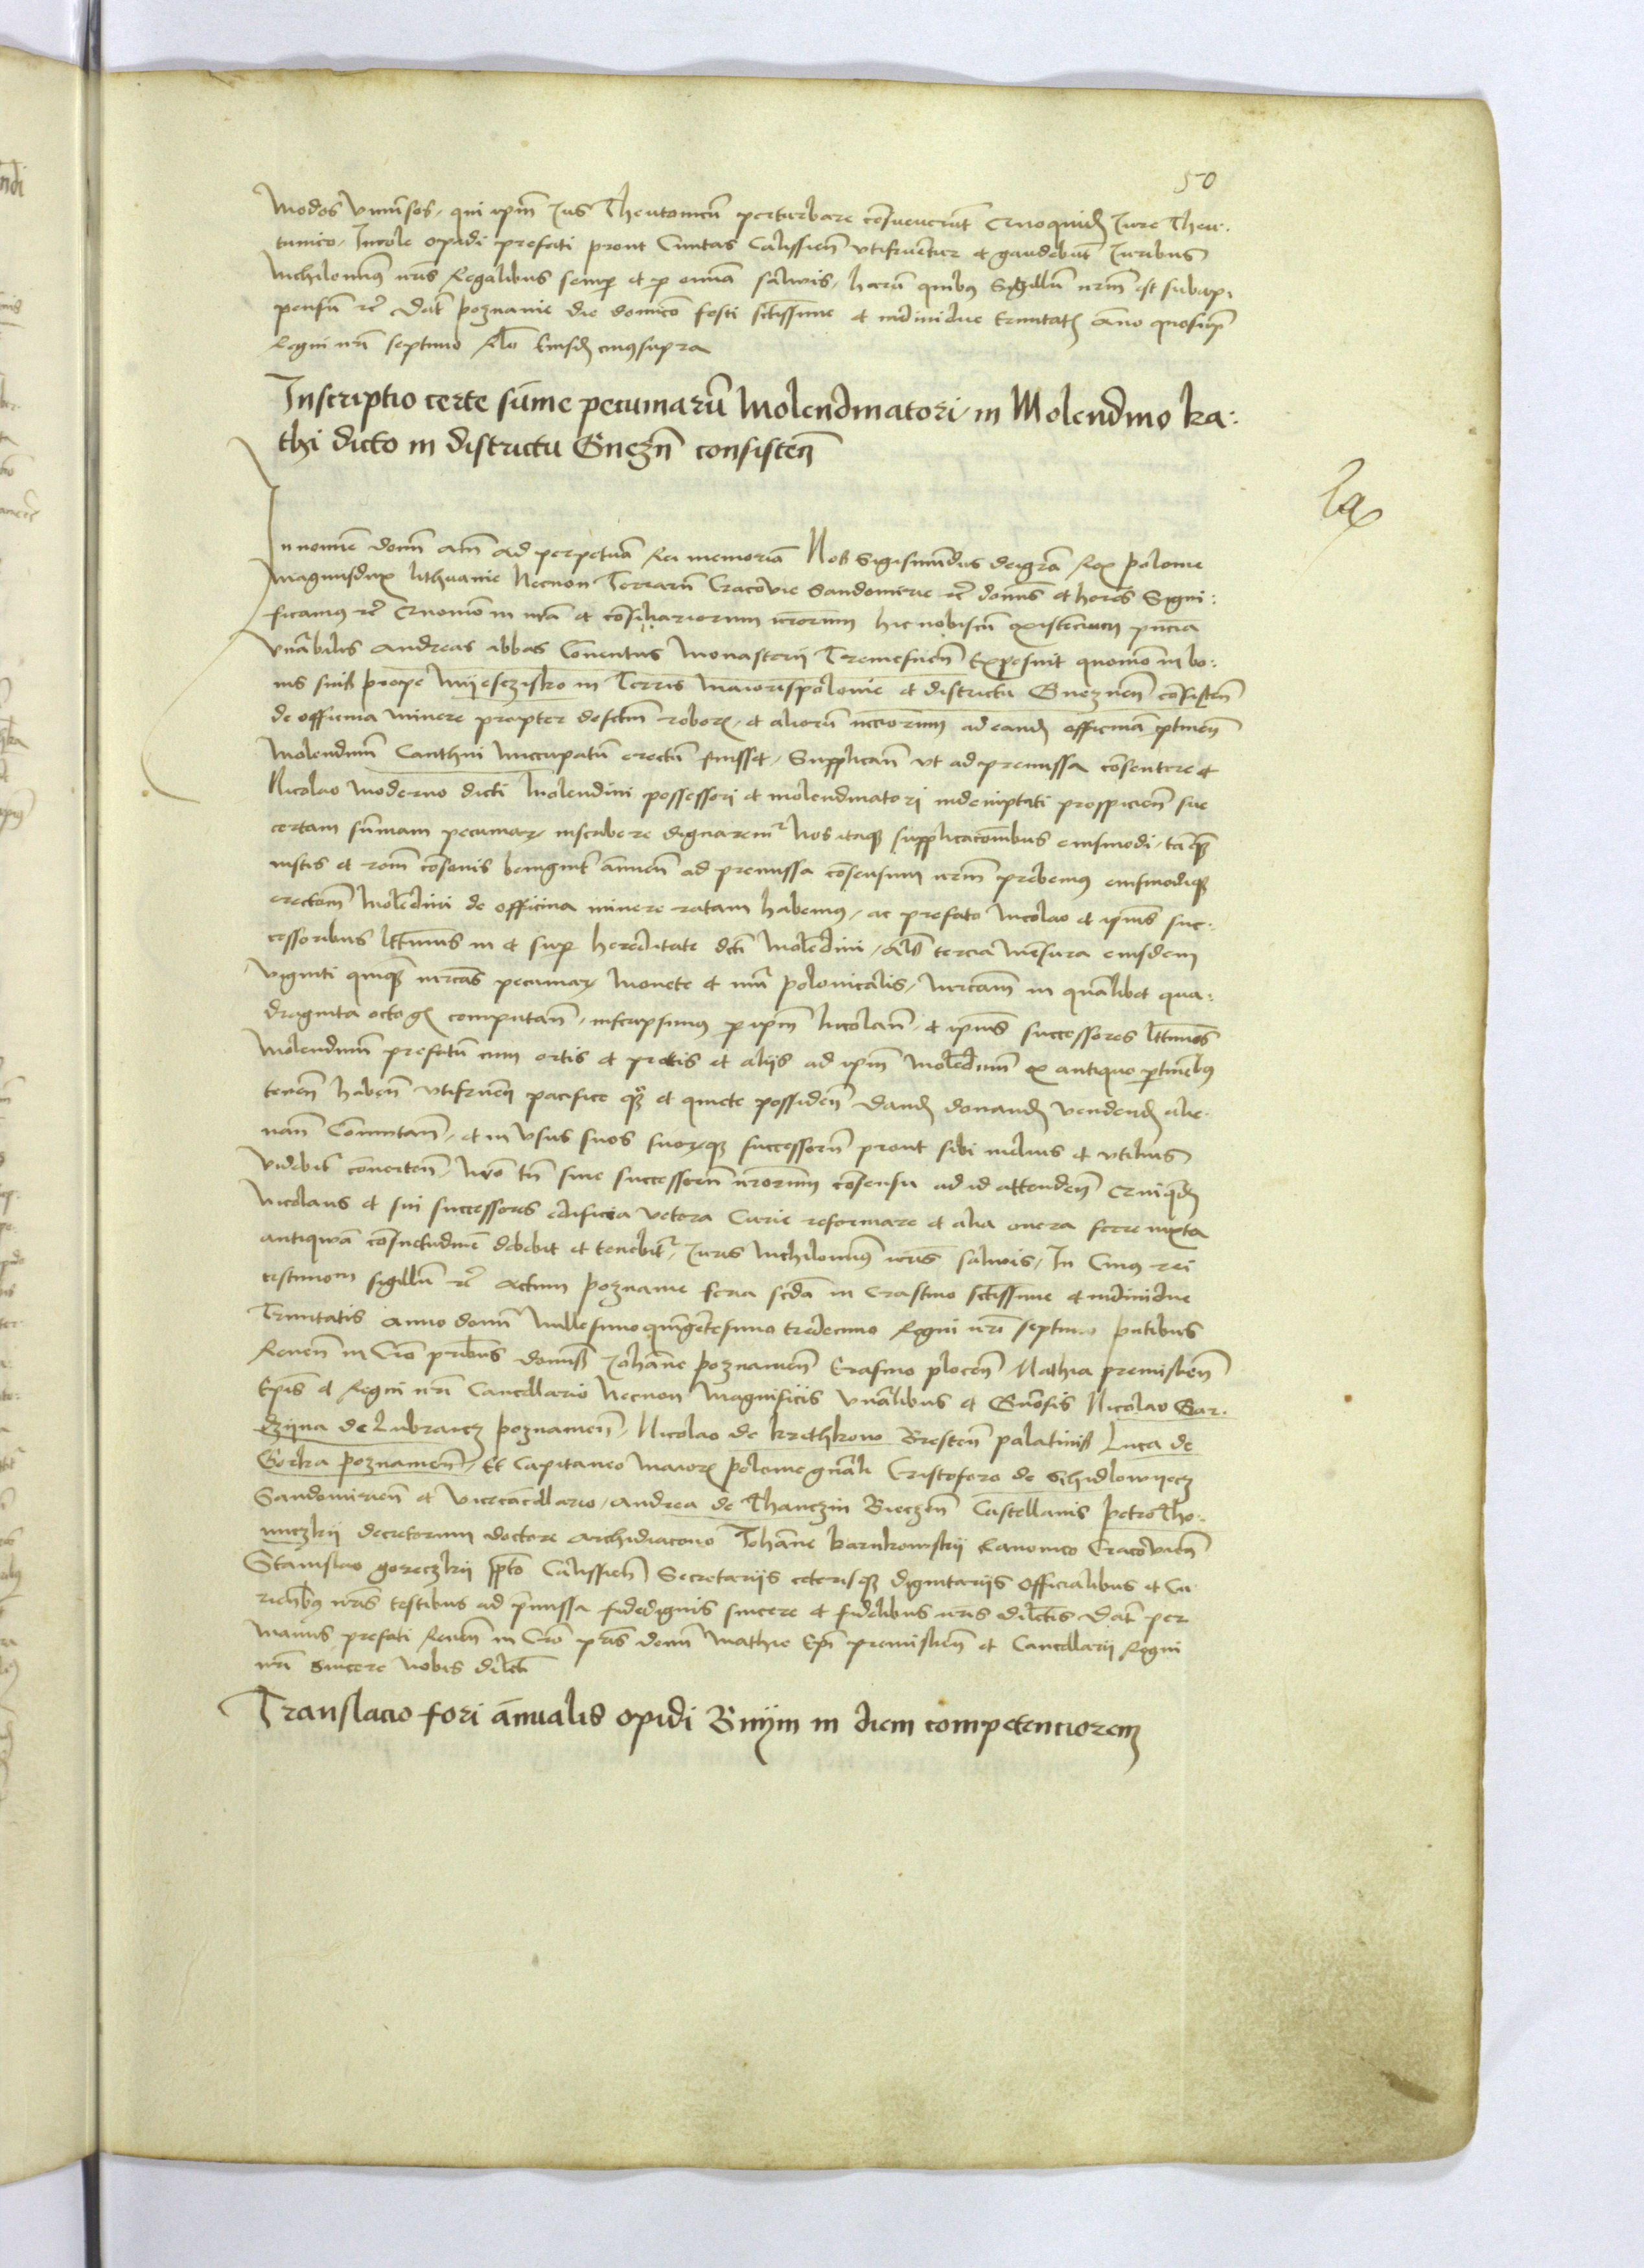 50
modos universos, qui ipm̄ Jus Theutonicū perturbare cōsueverūt Cuioquidē Jure Theu-
tunico, Incole opidi prefati prout Civitas Calissien̄ vtifruētur et gaudebūt Juribus
Nichilomin9 nr̄is Regalibus semp et p omnia salvis, harū quibus Sigillū nrm̄ est subap-
pensū rc̄ Dat̄ Poznanie die domīco festi sctissime et individue trinitatis Anno quosup̄
Regni nr̄i septimo Rlo Eiusdē cuius supra
Inscriptio certe sūme pecuniarū Molendinatori in Molendino ka:
thi dicto in districtu Gnezn̄ consisten̄
In nomine domī Amē ad perpetuā Rei memoriā Nos Sigismūndus dei grā Rex Polonie
Magnus dux Lithuanie Necnon Terrarū Cracovie Sandomirie rc̄ domīs et heres Signi:
ficamus rc̄ Quomō in nrā et cōsiliariorum nr̄orum hic nobiscū existēcium pn̄cia
Vnābilis Andreas abbas Conventus Monasterii Tremesnen̄ Exposuit quomō in bo:
nis suis prope Miiesczisko in Terris Maiorispolonie et districtu Gneznen̄ cōsisten̄
de officina minere propter defctm̄ roborū, et aliorū nccōrum ad eandē officinā ptinen̄
Molendinū Canthni nuccupatū erectū fuisset, Supplicān vt ad premissa cōsentire et
Nicolao moderno dicti Molendini possessori et molendinatori indemptati prospicien̄ sue
certam sūmam pecuniarū inscribere dignaremr Nos itaque supplicacōnibus eiusmodi, tāqȝ
iustis et rom̄ cōsonis benignit̄ annuen̄ ad premissa cōsensum nrm̄ prebemus eiusmodique
erectōm Molēdini de officina minere ratam habemus, ac prefato Nicolao et ipius suc-
cessoribus lttimis in et sup hereditate dcti Molēdini, als tercia mēsura eiusdem
viginti quinque mrcas pecuniarū monete et nri polonicalis, Mrcam in qualibet qua:
draginta octo gs computan̄, inscripsimus p ipm Nicolaū, et ipius successores lttimos
Molendinū prefatū cum ortis et pratis et aliis ad ipm Molēdinū ex antiquo ptinēbus
tenen̄ haben̄ vtifruen̄ pacifice qȝ et quiete possiden̄ Dandē donandē vendendē alie-
nan̄ Comutan̄, et in vsus suos suorūqȝ successorū prout sibi melius et vtilius
videbit convertēn, Nro tn̄ sive successorū nr̄orum cōsensu ad id attendēn Cuiusquidē
Nicolaus et sui successores edificia vetera Curie reformare et alia onera ferre iuxta
antiquā cōsuetudinē debebit et tenebitr, Juris Nichilomin9 nr̄is salvis, In Cuius rei
testimom sigillū rc̄ Actum Poznanie feria scda in crastino sctissime et individue
Trinitatis Anno domī Millesimo quingētesimo tredecimo Regni nr̄i septimo pntibus
Reven̄ in Cro pribus dominis Johanne Poznanien̄ Erasmo plocen̄ Mathia premislien̄
Epis et Regni nr̄i Cancellario Necnon Magnificis Vnālibus et Gnōsis Nicolao Gar-
dziina de Lubrancz Poznanien̄, Nicolao de Krethkow Bresten̄ palatinis Luca de
Gorka Poznanien̄, Et Capitaneo Maioris Polonie gnāli Cristoforo de Schidlowyecz
Sandomirien̄ et Vicecācellario, Andrea de Thanczin Bieczen̄ Castellanis Petro Tho-
miczkii decretorum doctore Archidiacono Johanne Karnkowskii Canonico Cracovien̄
Stanislao goreczkii ppto Calissien̄ Secretariis ceterisqȝ dignitariis officialibus et Cu-
rienbus nr̄is testibus ad p̄missa fidedignis sincere et fidelibus nr̄is dilectis Dat̄ per
manus prefati Reven̄ in Cro pris domī Mathie Epi premislien̄ et Cancellarii Regni
nr̄i Sincere nobis dilecti
Translacio fori ānualis opidi Bnijm in diem competenciorem